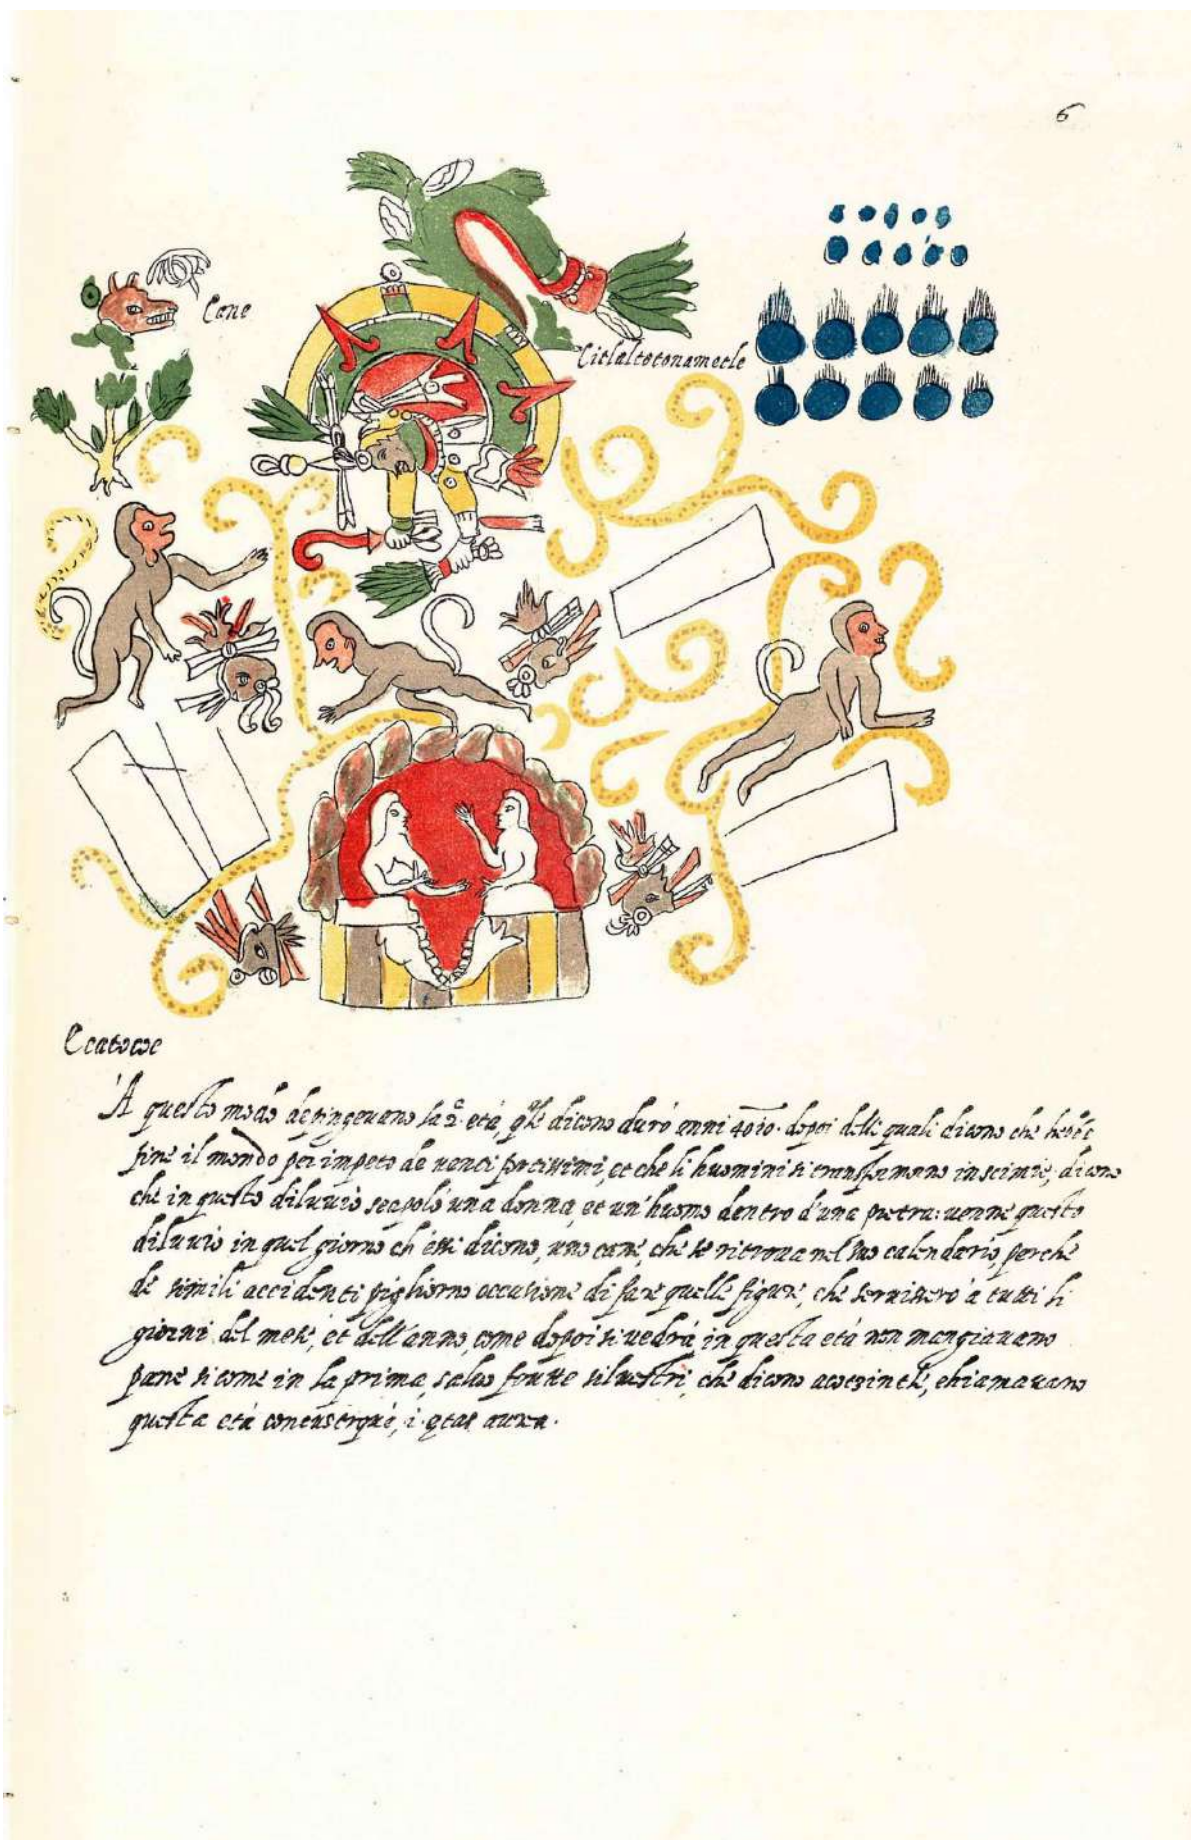 6
Cane
Citlaltotonametle
Ecatocoe
A questo modo depingevano la 2ª età, q̃le dicono duró anni 4010. dopoi delle quali dicono che hebbe
fine il mondo per impeto de venti fortissimi, et che li huomini si transformorno in scimie, dicono
che in questo diluvio scapoló una donna, et un'huomo dentro d'una pietra: venne questo
diluvio in quel giorno ch'essi dicono, uno cane, che se ritrova nel suo calendario, perche
de simili accidenti pigliorno occasione di fare quelle figure, che servissero á tutti li
giorni del mese, et dell'anno, come dopoi si vedrá, in questa etá non mangiavano
pane si come in la prima, salvo frutte silvestri, che dicono acoczintle, chiamavano
questa etá i. etas aurea.